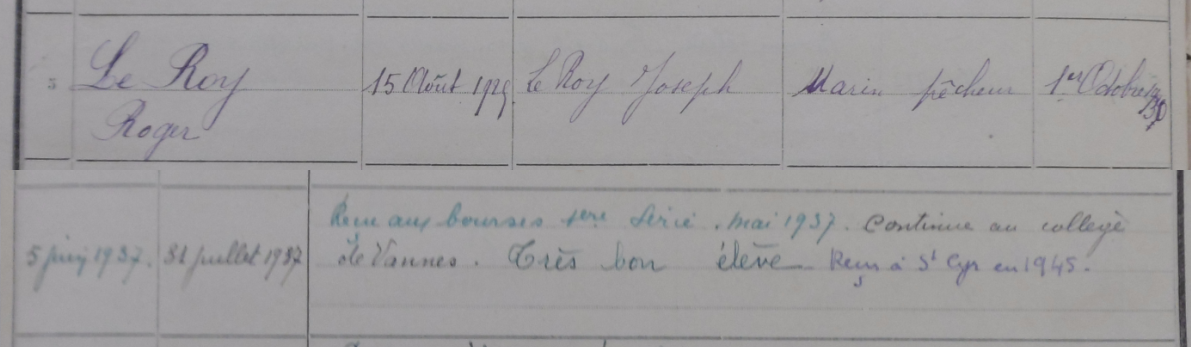 5
Le Roy
Roger
15 Août 1925
Le Roy Joseph
Marin pêcheur
1er Octobre 1930
5 juin 1937.
31 juillet 1937
Reçu aux bourses 1ere Série. mai 1937. Continue au collège
de Vannes. Très bon élève Reçu à St Cyr en 1945.